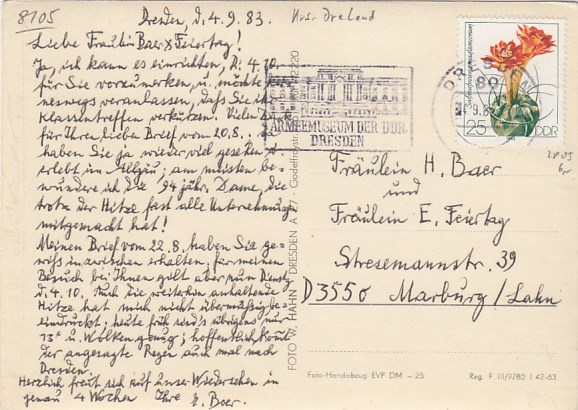 8105
Dresden, d. 4.9.83.
Liebe Fräulein Baer & Feiertag!
Ja, ich kann es einrichten, Di. 4.10.
für Sie vorzumerken u. möchte kei-
neswegs veranlassen, daß Sie ihr
Klassentreffen verkürzen. Vielen Dank
für Ihren lieben Brief vom 20.8. Da
haben Sie ja wieder viel gesehen u.
erlebt im Allgäu; am meisten be-
wundere ich die 94 jähr. Dame, die
trotz der Hitze fast alle Unternehmungen
mitgemacht hat!
Meinen Brief vom 22.8. haben Sie ge-
wiß inzwischen erhalten, für meinen
Besuch bei Ihnen gilt aber nun Dienstag
d. 4.10. Auch die weiterhin anhaltende
Hitze hat mich nicht übermäßig be-
eindruckt; heute früh sind's übrigens nur
13° u. Wolkengang; hoffentlich kommt
der angesagte Regen auch mal nach
Dresden.
Herzlich freut sich auf unser Wiedersehen in
genau 4 Wochen Ihre E. Baer.
FOTO W. HAHN DRESDEN A 27
ARMEEMUSEUM DER DDR
DRESDEN
DRESDEN
80
25
DDR
Fräulein H. Baer
und
Fräulein E. Feiertag
Stresemannstr. 39
D3550 Marburg/Lahn
Foto-Handabzug EVP DM – 25
Reg. F III/9/80 I 42-63